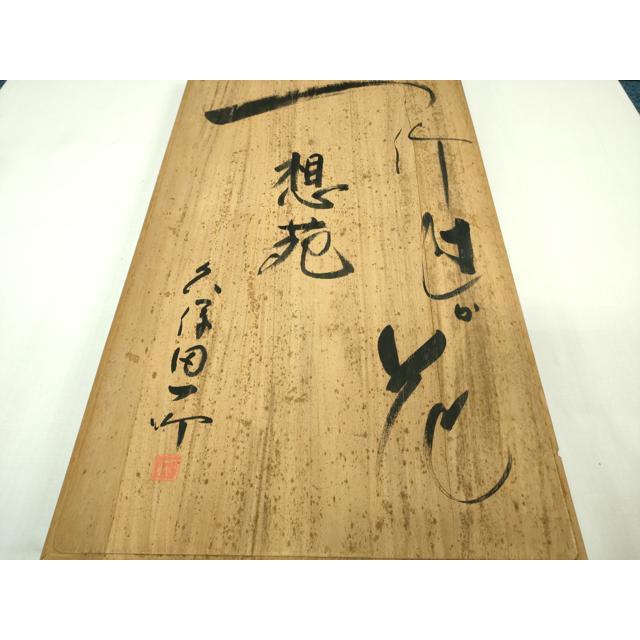 一竹辻が花
想苑
久保田一竹